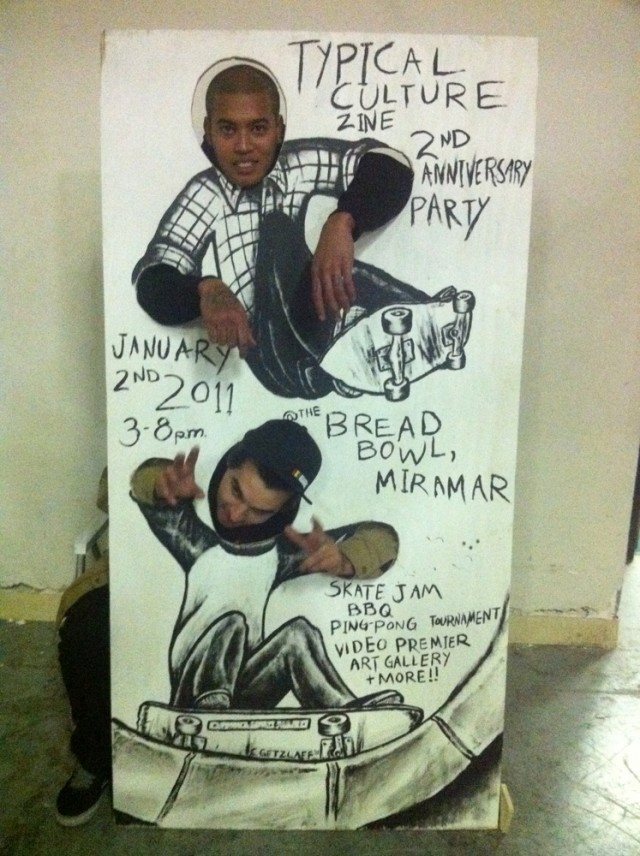 TYPICAL
CULTURE
ZINE
2ND
ANNIVERSARY
PARTY
JANUARY
2ND 2011
3-8pm.
@THE BREAD
BOWL,
MIRAMAR
SKATE JAM
BBQ
PING-PONG TOURNAMENT
VIDEO PREMIER
ART GALLERY
+MORE!!
C GETZLAFF